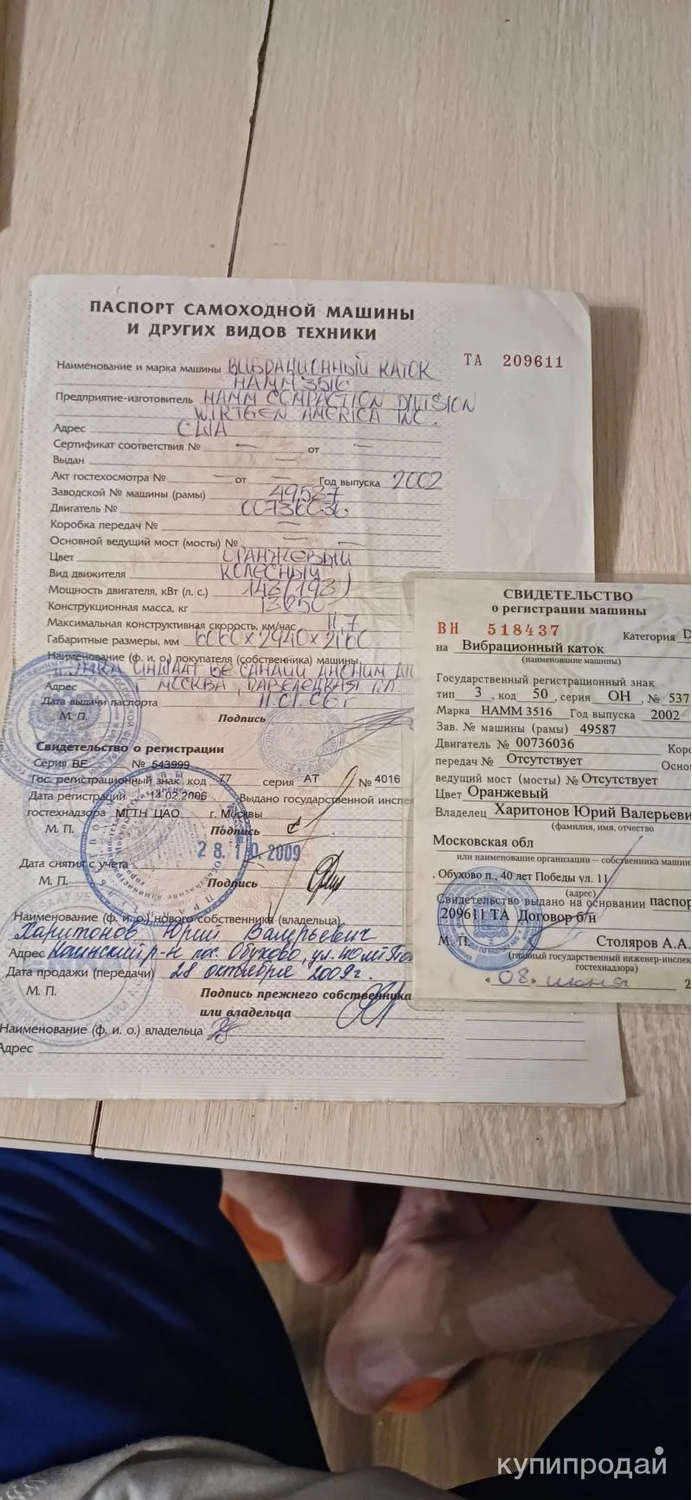 ПАСПОРТ САМОХОДНОЙ МАШИНЫ
И ДРУГИХ ВИДОВ ТЕХНИКИ
ТА 209611
Наименование и марка машины ВИБРАЦИОННЫЙ КАТОК
HAMM 3516
Предприятие-изготовитель HAMM COMPACTION DIVISION
WIRTGEN AMERICA INC.
Адрес США
Сертификат соответствия № — от —
Выдан —
Акт гостехосмотра № — от — Год выпуска 2002
Заводской № машины (рамы) 49587
Двигатель № 00736036
Коробка передач № —
Основной ведущий мост (мосты) № —
Цвет ОРАНЖЕВЫЙ
Вид движителя КОЛЕСНЫЙ
Мощность двигателя, кВт (л. с.) 142 (193)
Конструкционная масса, кг
Максимальная конструктивная скорость, км/час 11,7
Габаритные размеры, мм
Наименование (ф. и. о.) покупателя (собственника) машины
Адрес МОСКВА
Дата выдачи паспорта 11.01.06 г
М. П. Подпись
Свидетельство о регистрации
Серия ВЕ № 543999
Гос. регистрационный знак код 77 серия АТ № 4016
Дата регистрации 14.02.2006 Выдано государственной инспе
гостехнадзора МГТН ЦАО г. Москвы
М. П. Подпись
28.10.2009
Дата снятия с учета
М. П. Подпись
Наименование (ф. и. о.) нового собственника (владельца)
Харитонов Юрий Валерьевич
Адрес пос. Обухово, ул.
Дата продажи (передачи) 28 октября 2009г.
М. П. Подпись прежнего собственника
или владельца
Наименование (ф. и. о.) владельца
Адрес
СВИДЕТЕЛЬСТВО
о регистрации машины
ВН 518437 Категория D
на Вибрационный каток
(наименование машины)
Государственный регистрационный знак
тип 3, код 50, серия ОН, № 537
Марка HAMM 3516 Год выпуска 2002
Зав. № машины (рамы) 49587
Двигатель № 00736036 Коро
передач № Отсутствует Осно
ведущий мост (мосты) № Отсутствует
Цвет Оранжевый
Владелец Харитонов Юрий Валерьеви
(фамилия, имя, отчество
Московская обл
или наименование организации – собственника машин
. Обухово п., 40 лет Победы ул. 11
(адрес)
Свидетельство выдано на основании паспор
209611 ТА Договор б/н
М. П. Столяров А.А.
(главный государственный инженер-инспек
гостехнадзора)
«08» июня 2
купипродай